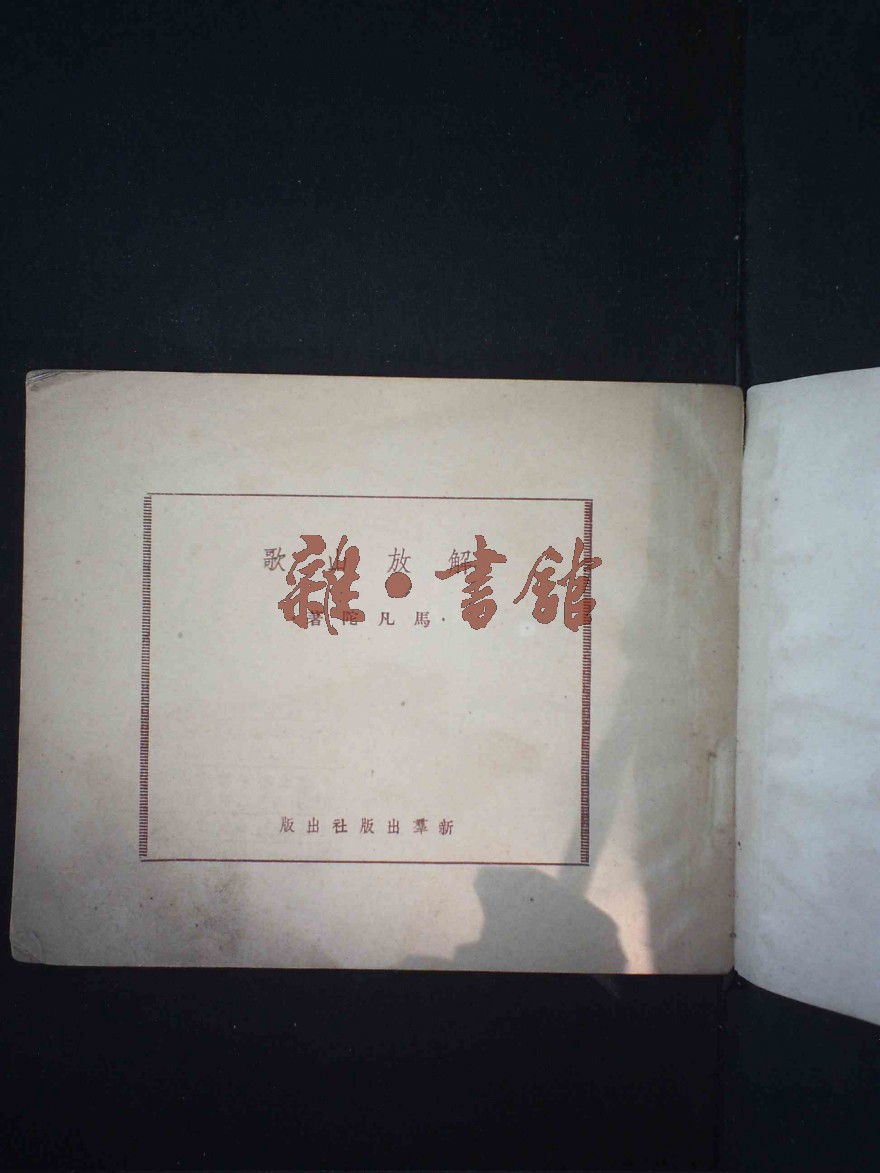 解放山歌
雜·書館
馬凡陀著
新羣出版社出版